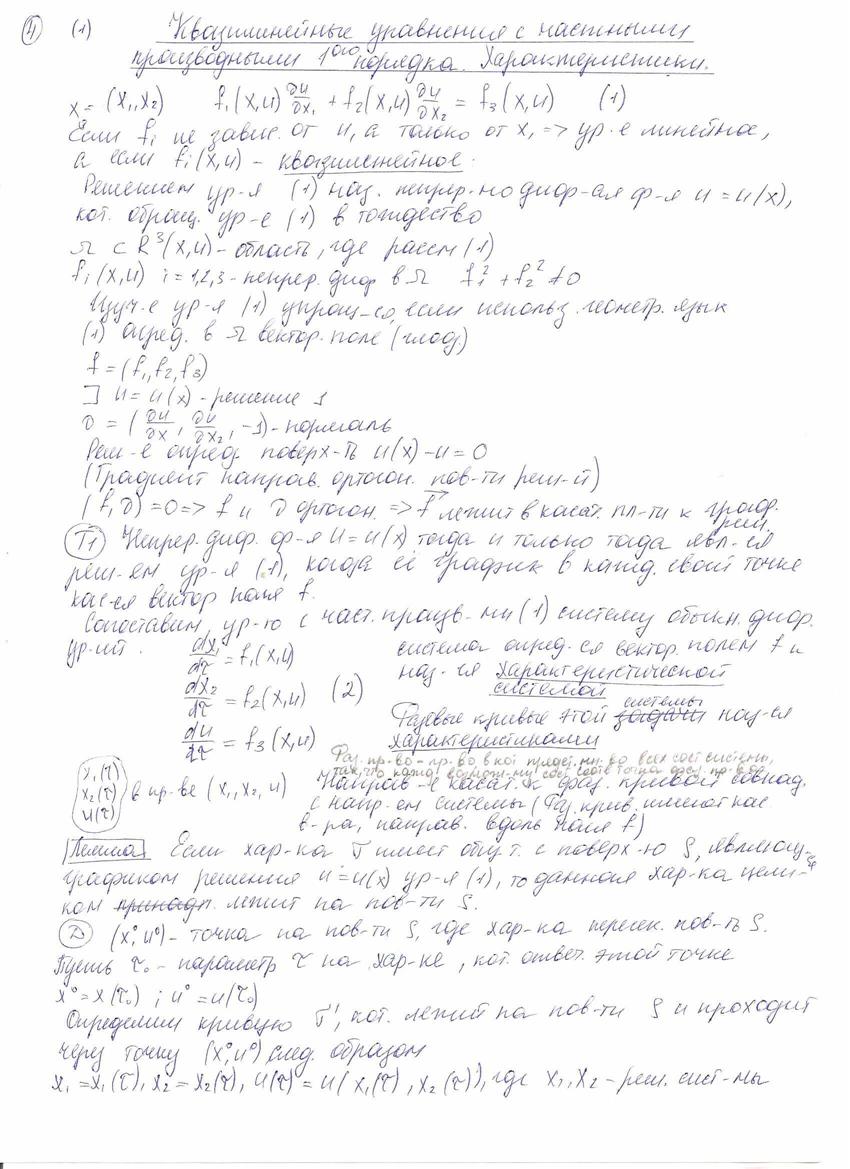 ④ (1) Квазилинейные уравнения с частными
производными 1ого порядка. Характеристики.
x = (x₁, x₂) f₁(x,u) ∂u/∂x₁ + f₂(x,u) ∂u/∂x₂ = f₃(x,u) (1)
Если fᵢ не завис. от u, а только от x, => ур-е линейное,
а если fᵢ(x,u) – квазилинейное.
Решением ур-я (1) наз. непрер-но диф-ая ф-я u = u(x),
кот. обращ. ур-е (1) в тождество
Ω ⊂ R³(x,u) – область, где рассм (1)
fᵢ(x,u) i = 1,2,3 – непрер. диф в Ω f₁² + f₂² ≠ 0
Изуч-е ур-я (1) упрощ-ся, если использ. геометр. язык
(1) опред. в Ω вектор. поле (глад.)
f = (f₁, f₂, f₃)
] u = u(x) – решение 1
υ = (∂u/∂x, ∂u/∂x₂, -1) – нормаль
Реш-е опред. поверх-ть u(x) – u = 0
(Градиент направ. ортогон. пов-ти реш-й)
(f, υ) = 0 => f и υ ортогон. => f лежит в касат. пл-ти к граф.
реш.
(Т1) Непрер. диф. ф-я u = u(x) тогда и только тогда явл-ся
реш-ем ур-я (1), когда её график в кажд. своей точке
кас-ся вектор поля f.
Сопоставим ур-ю с част. произв-ми (1) систему обыкн. диф.
ур-ий.
dx₁/dτ = f₁(x,u) система опред-ся вектор. полем f и
наз-ся характеристической
dx₂/dτ = f₂(x,u) (2) системой
системы
Фазовые кривые этой задачи наз-ся
du/dτ = f₃(x,u) характеристиками
Фаз. пр-во – пр-во в кот предст. мн-во всех сост системы,
так, что кажд. возможн-му сост соотв точка фаз. пр-ва
x₁(τ)
x₂(τ) в пр-ве (x₁, x₂, u) Направ-е касат. к фаз. кривой совпад.
u(τ) с напр-ем системы (Фаз. крив. имеют кас
в-ра, направ. вдоль поля f)
Лемма Если хар-ка Г имеет общ. т. с поверх-ю S, являющ-ся
графиком решения u = u(x) ур-я (1), то данная хар-ка цели-
ком принадл. лежит на пов-ти S.
(Д) (x°, u°) – точка на пов-ти S, где хар-ка пересек. пов-ть S.
Пусть τ₀ – параметр τ на хар-ке, кот. ответ. этой точке
x° = x(τ₀); u° = u(τ₀)
Определим кривую Г', кот. лежит на пов-ти S и проходит
через точку (x°, u°) след. образом
x₁ = x₁(τ), x₂ = x₂(τ), u(τ) = u(x₁(τ), x₂(τ)), где x₁, x₂ – реш. сист-мы